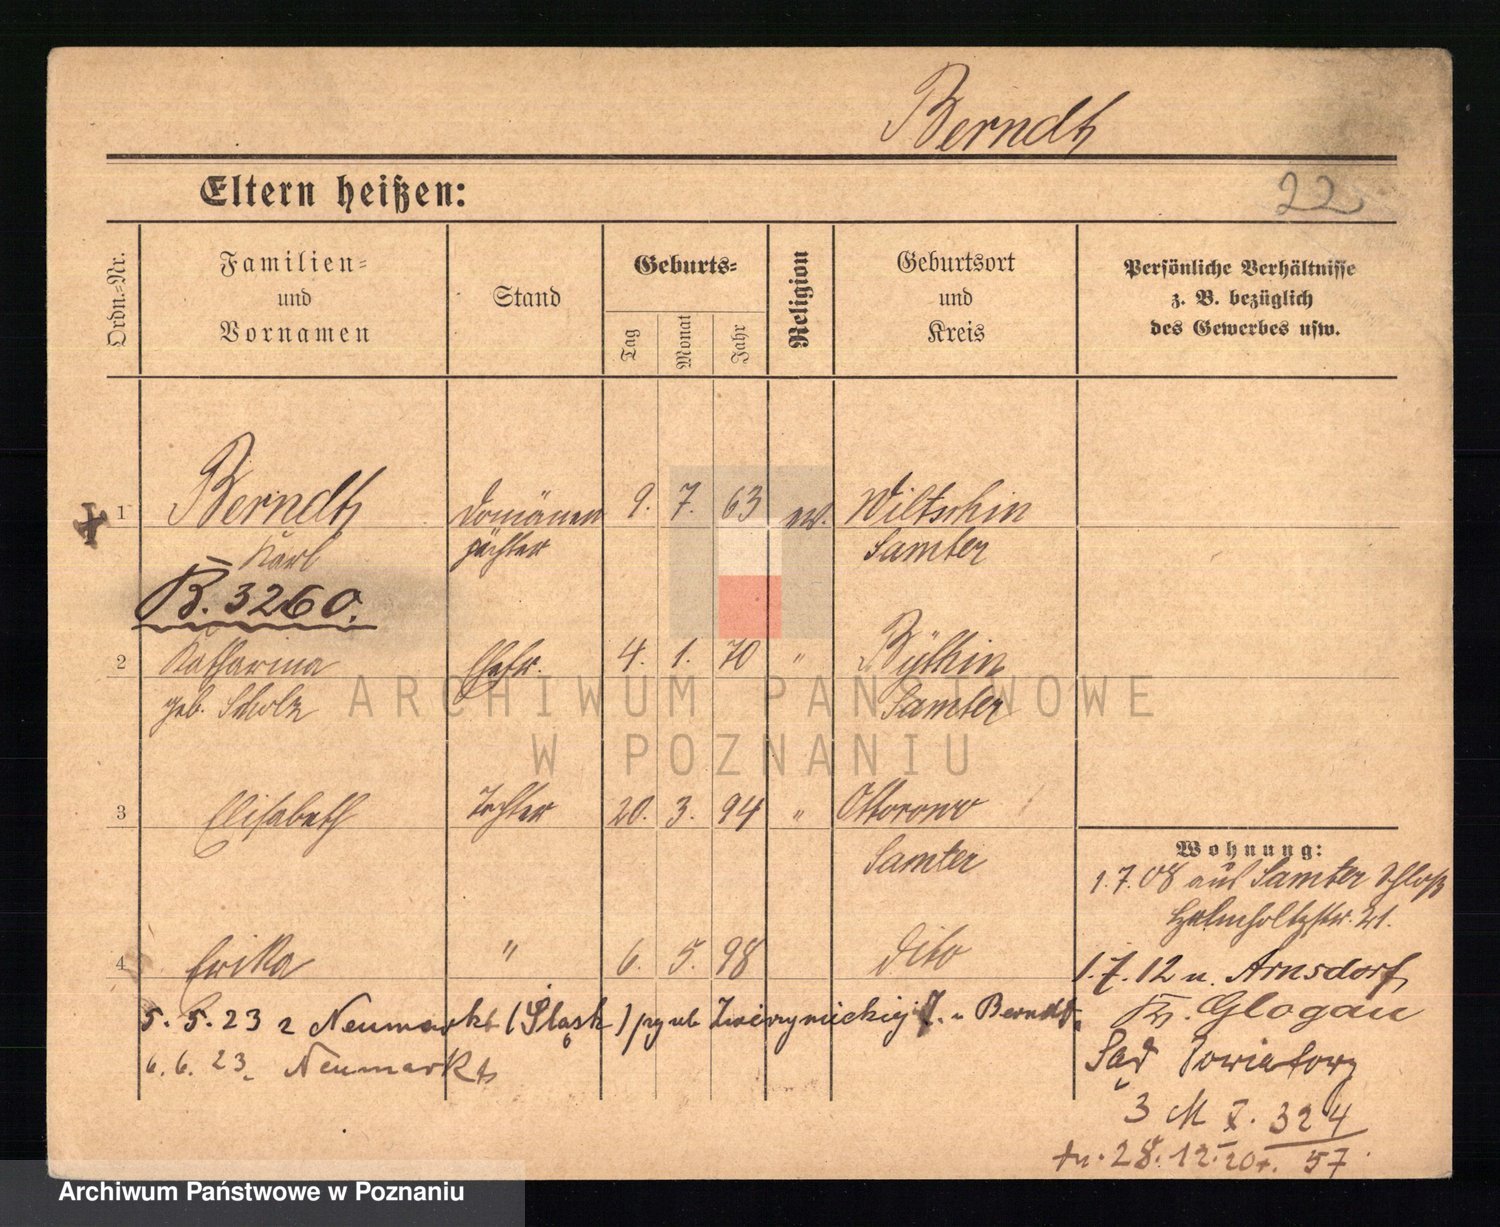 Berndt
Eltern heißen:
22
Ordn.-Nr.
Familien-
und
Vornamen
Stand
Geburts-
Tag
Monat
Jahr
Religion
Geburtsort
und
Kreis
Persönliche Verhältnisse
z. B. bezüglich
des Gewerbes usw.
1 Berndt Domänen 9. 7. 63 ev. Wiltschin
Karl pächter Samter
B. 3260.
2 Katharina Ehefr. 4. 1. 70 " Bythin
geb. Scholz Samter
ARCHIWUM PAŃSTWOWE
W POZNANIU
3 Elisabeth Tochter 20. 3. 94 " Ottorowo
Samter
4 Erika " 6. 5. 98 dito
5. 5. 23 z Neumarkt (Śląsk) ul. Berndt
6. 6. 23 Neumarkt
Wohnung:
1.7.08 aus Samter Schloß
Helmholtzstr. 21.
1.7.12 n. Arnsdorf
Kr. Glogau
Sąd Powiatowy
3 M 324
28.12.20 57
Archiwum Państwowe w Poznaniu